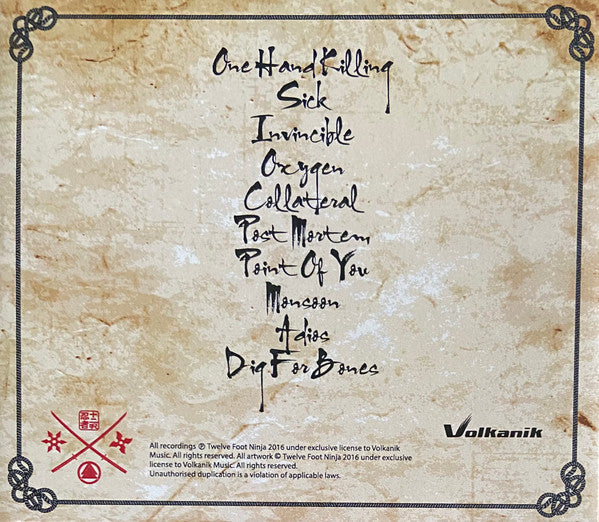 One Hand Killing
Sick
Invincible
Oxygen
Collateral
Post Mortem
Point Of You
Monsoon
Adios
Dig For Bones
All recordings ℗ Twelve Foot Ninja 2016 under exclusive license to Volkanik
Music. All rights reserved. All artwork © Twelve Foot Ninja 2016 under exclusive
license to Volkanik Music. All rights reserved.
Unauthorised duplication is a violation of applicable laws.
Volkanik